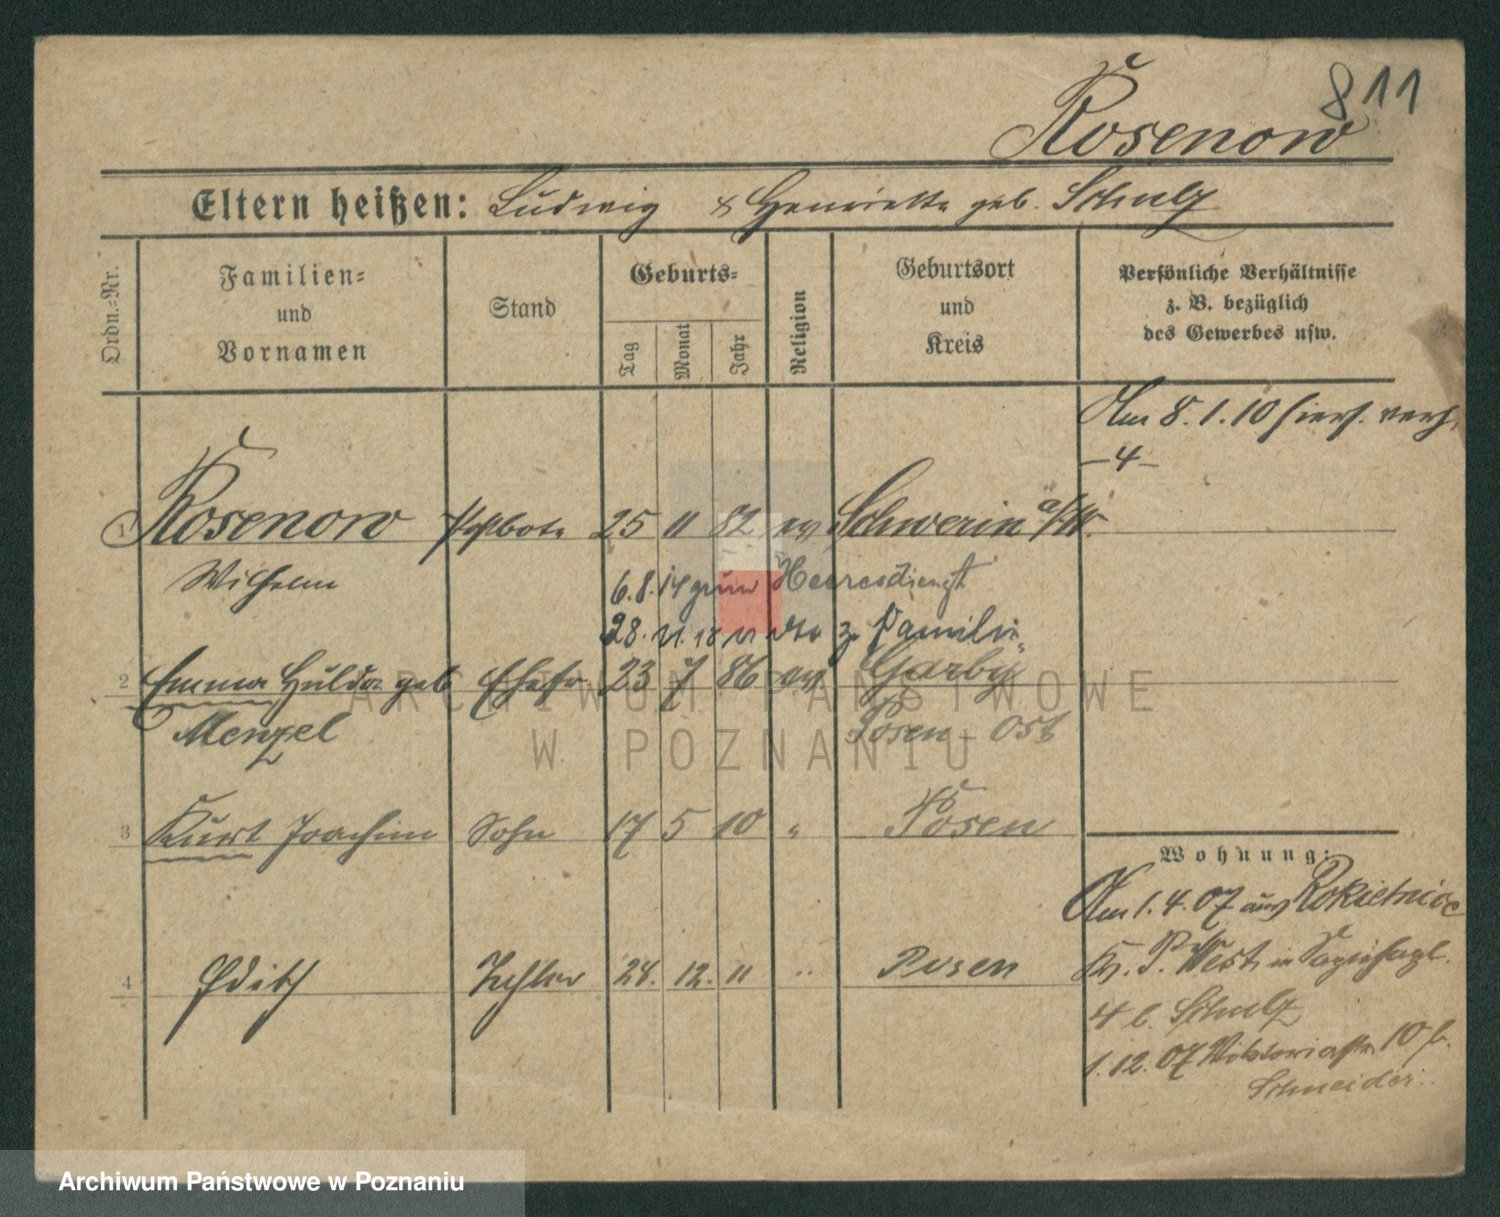 811
Rosenow
Eltern heißen: Ludwig & Henriette geb. Schulz
Ordn.=Nr.
Familien=
und
Vornamen
Stand
Geburts=
Tag
Monat
Jahr
Religion
Geburtsort
und
Kreis
Persönliche Verhältnisse
z. B. bezüglich
des Gewerbes usw.
Am 8.1.10 hiers. verh.
- 4 -
1 Rosenow Postbote 25 11 82 ev Schwerin a/W.
Wilhelm
6.8.14 zum Heeresdienst
28.11.18 zr Familie
2 Emma Hulda geb Ehefr 23 7 86 ev Garby
Menzel Posen Ost
3 Kurt Joachim Sohn 17 5 10 " Posen
4 Edith Tochter 24. 12. 11 " Posen
Wohnung:
Am 1.4.07 aus Rokietnice
Kr. Posen West in
4 b. Schulz
1.12.07 Viktoriastr 10 b.
Schneider.
ARCHIWUM PAŃSTWOWE
W POZNANIU
Archiwum Państwowe w Poznaniu